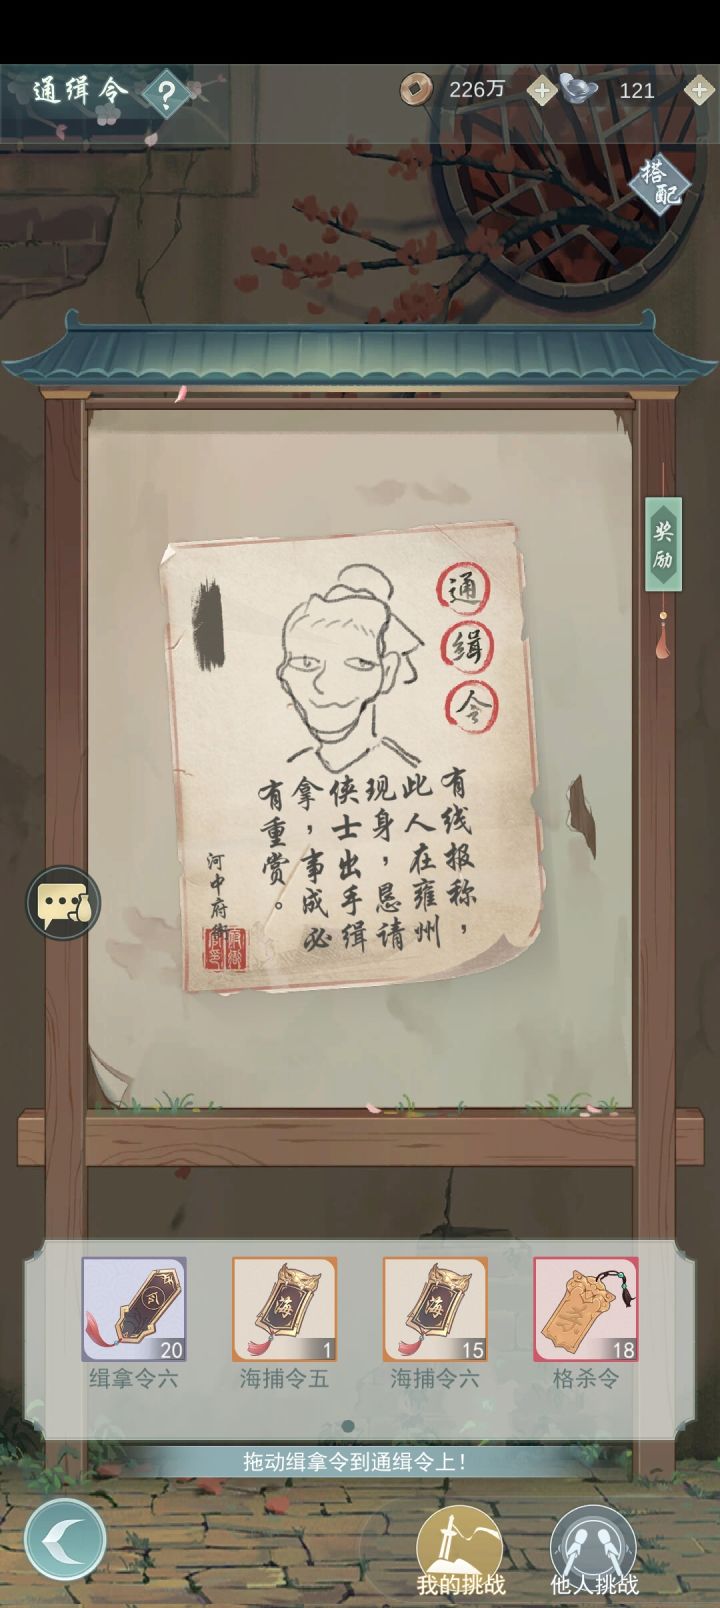 通缉令
?
226万
121
搭配
奖励
通缉令
有线报称，
此人在雍州
现身，恳请
侠士出手缉
拿，事成必
有重赏。
河中府衙
令
20
海
1
海
15
杀
18
缉拿令六
海捕令五
海捕令六
格杀令
拖动缉拿令到通缉令上！
我的挑战
他人挑战